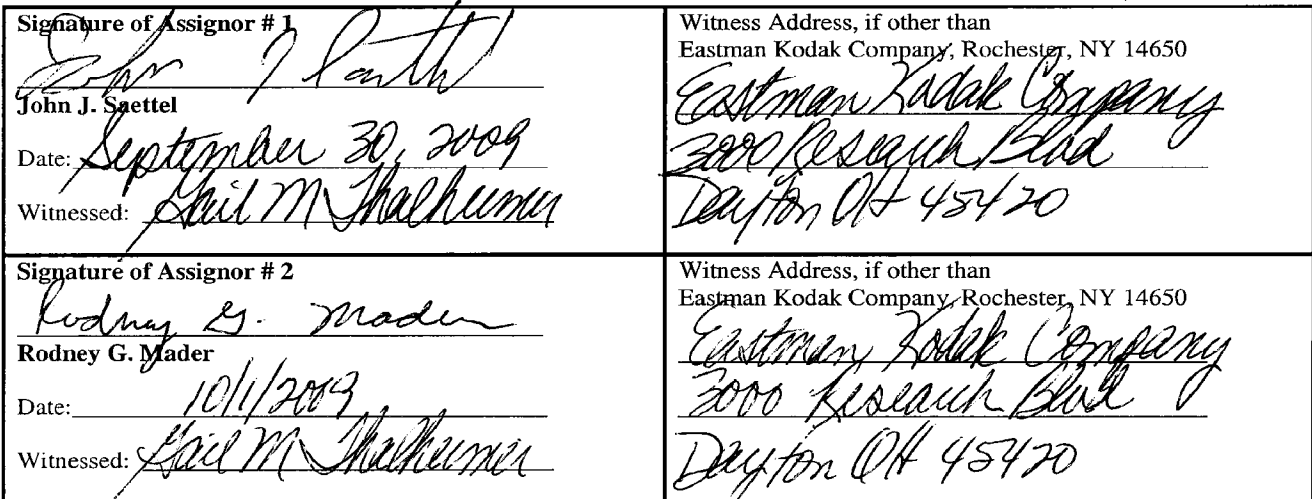 Signature of Assignor # 1
John J.
John J. Saettel
Date: September 30, 2009
Witnessed: Gail M Thalheimer
Witness Address, if other than
Eastman Kodak Company, Rochester, NY 14650
Eastman Kodak Company
3000 Research Blvd
Dayton OH 45420
Signature of Assignor # 2
Rodney G. Mader
Rodney G. Mader
Date: 10/1/2009
Witnessed: Gail M Thalheimer
Witness Address, if other than
Eastman Kodak Company, Rochester, NY 14650
Eastman Kodak Company
3000 Research Blvd
Dayton OH 45420